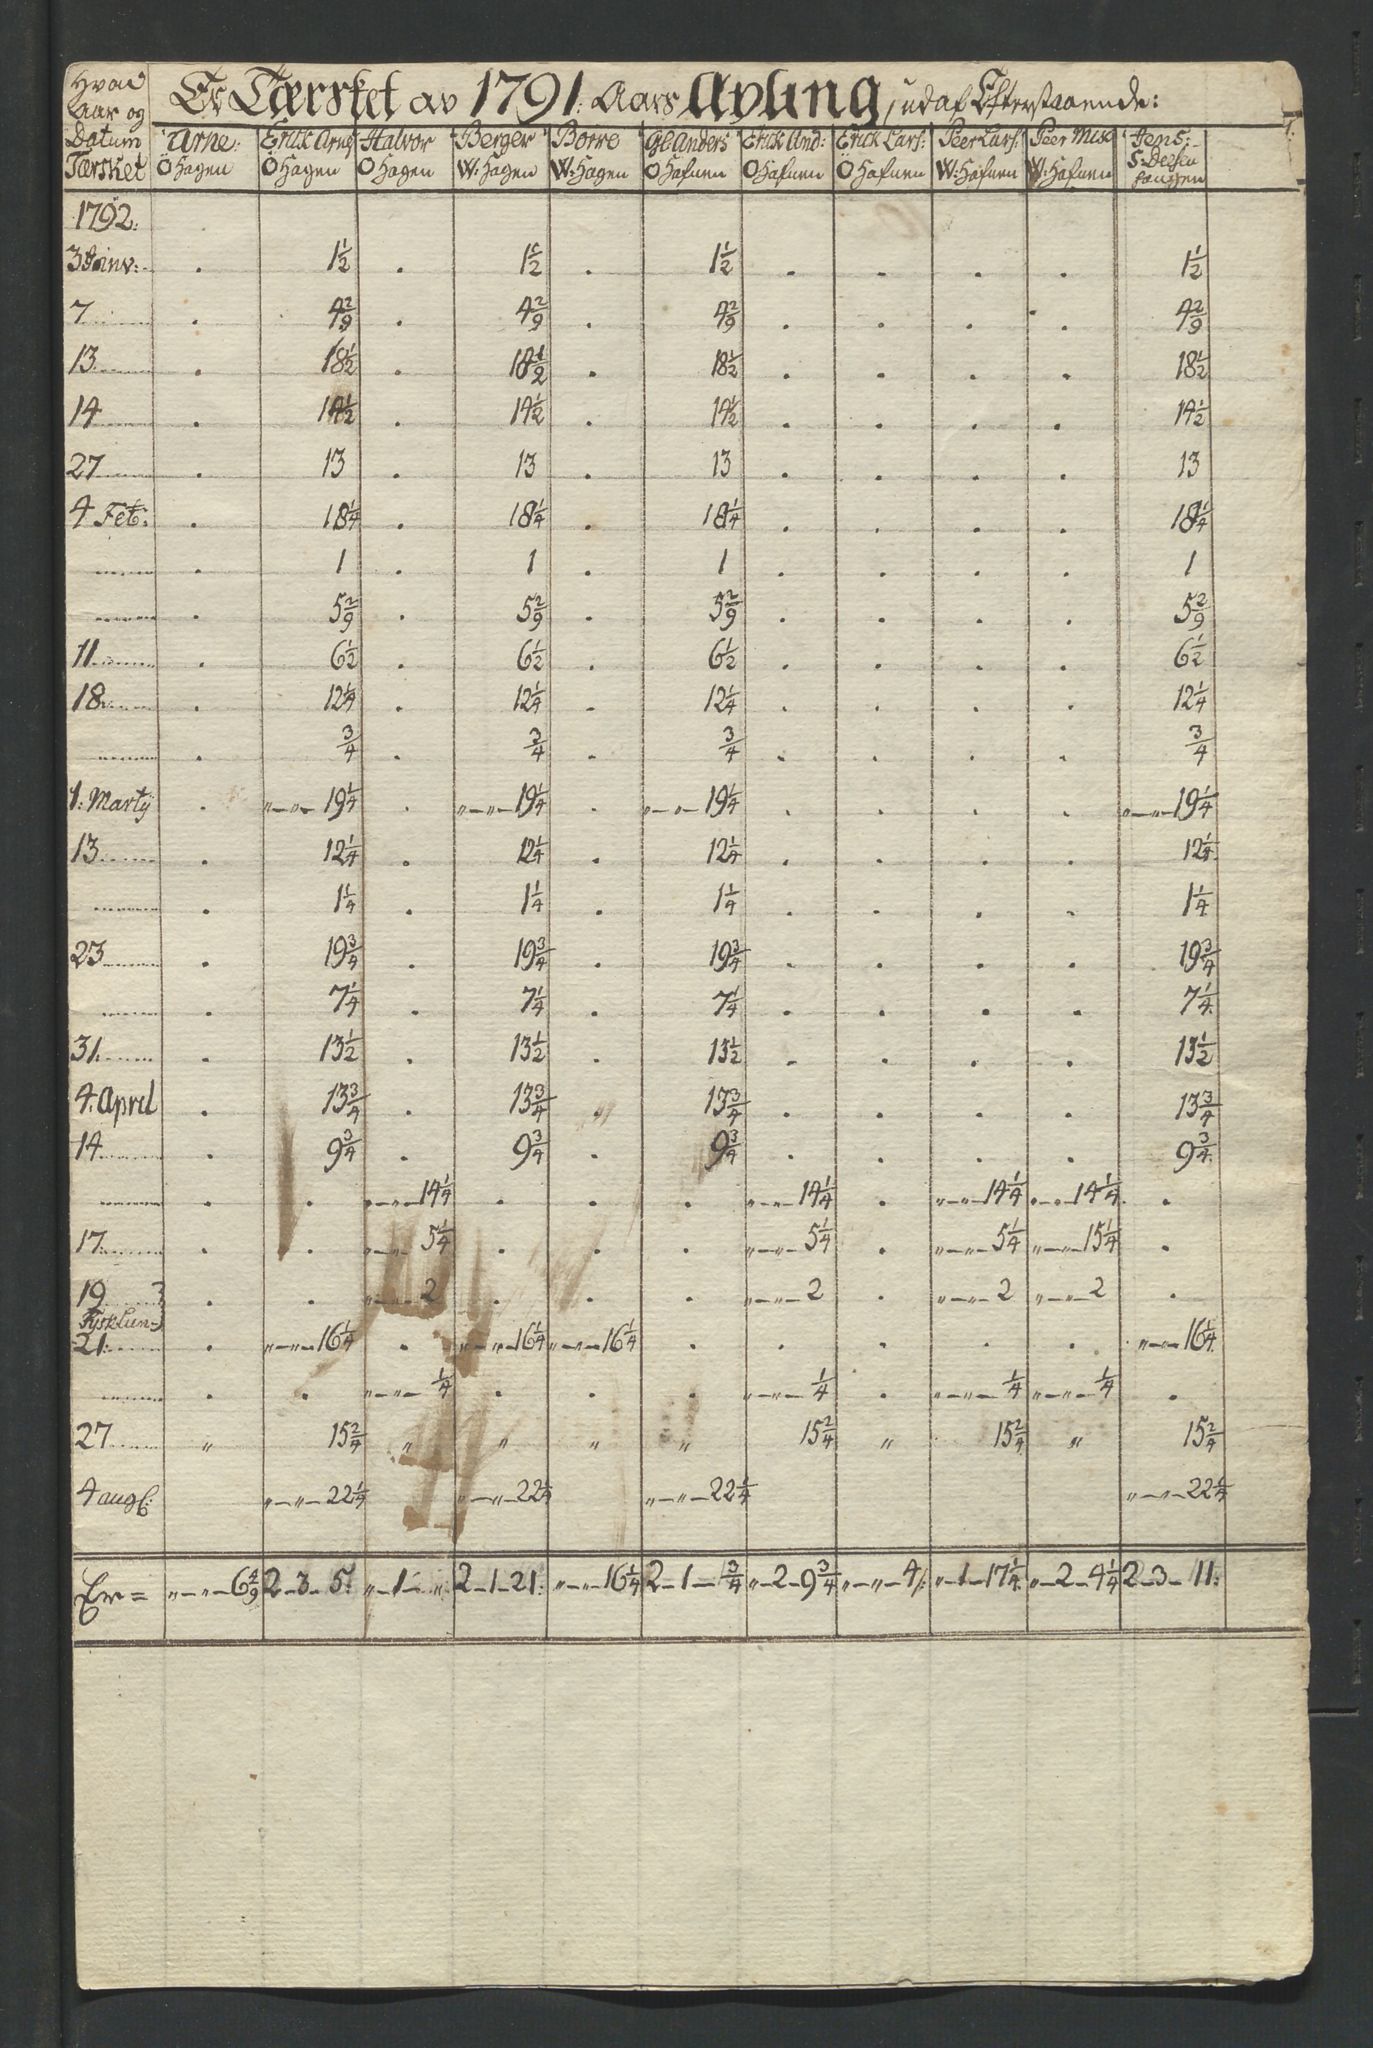 Hvad Aar og Datum Tærsket | Er Tærsket av 1791: Aars Avling, udaf Efterstaaende:
Arne: Ö Hagen | Erick Arnes Ö Hagen | Halvor Ö Hagen | Berger W: Hagen | Borre W: Hagen | Gl. Anders Ö Hafnen | Erick And: Ö Hafnen | Erick Lars: Ö Hafnen | Peer Lars: W: Hafnen | Peer W: Hafnen | Jens: S:
1792:
3 Janv: . 1 1/2 . 1 1/2 . 1 1/2 . . . . 1 1/2
7 . 4 2/9 . 4 2/9 . 4 2/9 . . . . 4 2/9
13 . 18 1/2 . 18 1/2 . 18 1/2 . . . . 18 1/2
14 . 14 1/2 . 14 1/2 . 14 1/2 . . . . 14 1/2
27 . 13 . 13 . 13 . . . . 13
4 Feb: . 18 1/4 . 18 1/4 . 18 1/4 . . . . 18 1/4
. 1 . 1 . 1 . . . . 1
. 5 2/9 . 5 2/9 . 5 2/9 . . . . 5 2/9
11 . 6 1/2 . 6 1/2 . 6 1/2 . . . . 6 1/2
18 . 12 1/4 . 12 1/4 . 12 1/4 . . . . 12 1/4
. 3/4 . 3/4 . 3/4 . . . . 3/4
1: Martij . "—"—19 1/4 . "—"—19 1/4 . "—"—19 1/4 . . . . "—"—19 1/4
13 . 12 1/4 . 12 1/4 . 12 1/4 . . . . 12 1/4
. 1 1/4 . 1 1/4 . 1 1/4 . . . . 1 1/4
23 . 19 3/4 . 19 3/4 . 19 3/4 . . . . 19 3/4
. 7 1/4 . 7 1/4 . 7 1/4 . . . . 7 1/4
31 . 13 1/2 . 13 1/2 . 13 1/2 . . . . 13 1/2
4. April . 13 3/4 . 13 3/4 " 13 3/4 . . . . 13 3/4
14 . 9 3/4 . 9 3/4 . 9 3/4 . . . . 9 3/4
. . "—"—14 1/4 . . . "—"—14 1/4 . "—"—14 1/4 "—"—14 1/4 .
17 . . "—"—5 1/4 . . . "—"—5 1/4 . "—"—5 1/4 "—"—15 1/4 .
19 . . "—"—2 . . . "—"—2 . "—"—2 "—"—2 .
21 . "—"—16 1/4 . "—"—16 1/4 "—"—16 1/4 . . . . . "—"—16 1/4
. . "—"—1/4 . . . "—"—1/4 . "—"—1/4 "—"—1/4 .
27 " 15 2/4 " " " " 15 2/4 " 15 2/4 " 15 2/4
4 aug "—"—22 1/4 "—"—22 1/4 "—"—22 1/4 "—"—22 1/4
Er = "—"—6 4/9 2—3—5: "—1—" 2—1—21: "—"—16 1/4 2—1—3/4 "—2—9 3/4 "—"—4/: "—1—17 1/4 "—2—4 1/4 2—3—11: